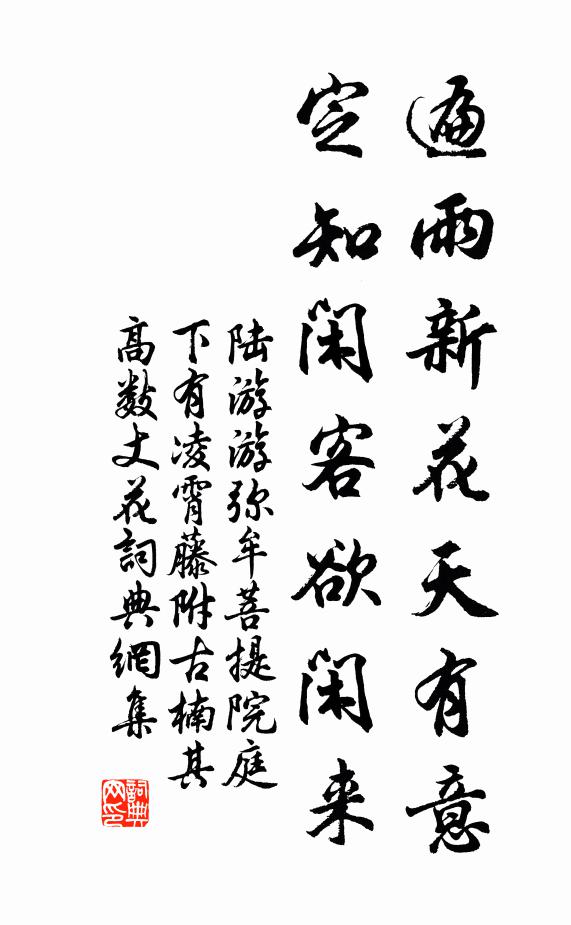 遍雨新花天有意
定知闲客欲闲来
陆游游弥牟菩提院庭
下有凌霄藤附古楠其
高数丈花詞典網集
詞典
网印